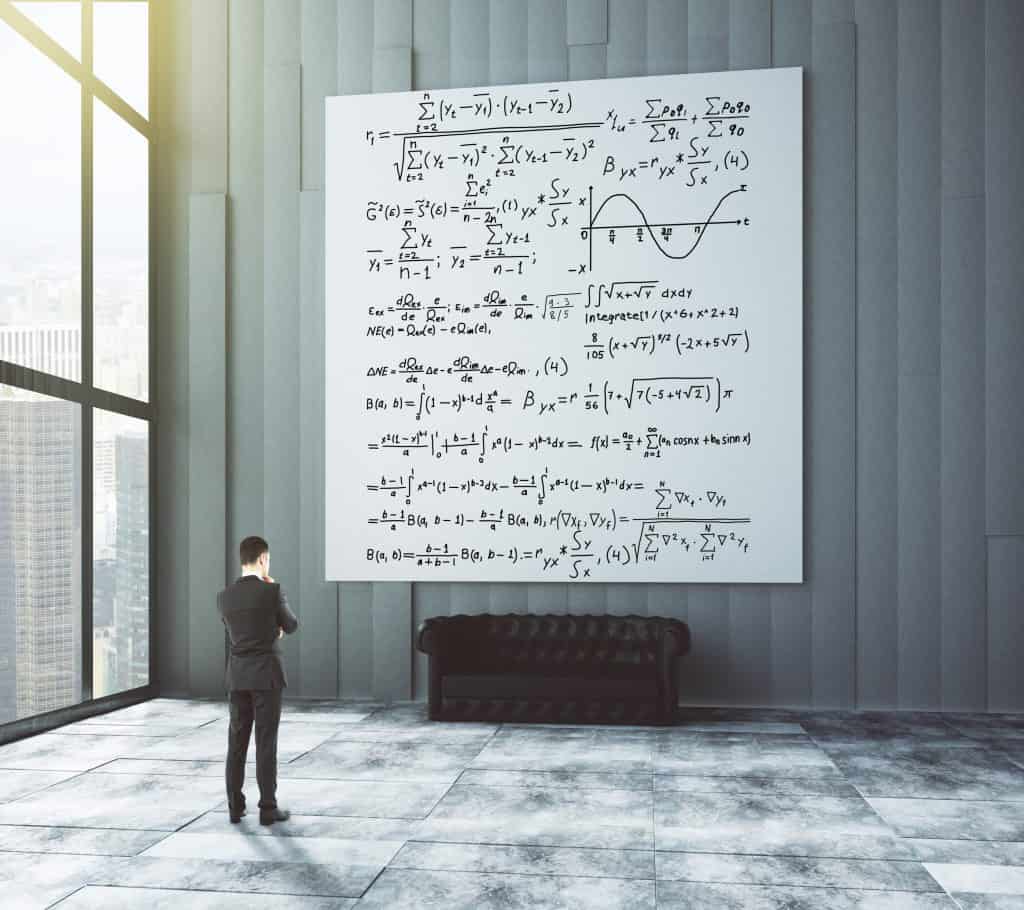 r₁ = ∑ⁿₜ₌₂ (yₜ − ȳ₁) · (yₜ₋₁ − ȳ₂) / √(∑ⁿₜ₌₂ (yₜ − ȳ₁)² · ∑ⁿₜ₌₂ (yₜ₋₁ − ȳ₂)²)
= ∑p₀q₁ / ∑q₁ + ∑p₀q₀ / ∑q₀
β yx = r yx * Sy / Sx , (4)
G̃²(ε) = S̃²(ε) = ∑ⁿᵢ₌₁ eᵢ² / n − 2n , (1) yx * Sy / Sx
x
0 π/4 π/2 3π/4 π t
−x
ȳ₁ = ∑ⁿₜ₌₂ yₜ / n − 1 ; ȳ₂ = ∑ⁿₜ₌₂ yₜ₋₁ / n − 1 ;
εex = dΩex / de · e / Ωex ; εim = dΩim / de · e / Ωim · √(9 · 3 / 8 / 5)
NE(e) = Ωex(e) − eΩim(e),
∬ √(x + √y) dxdy
Integrate[1/(x^6+x^2+2)
8/105 (x + √y)^3/2 (−2x + 5√y)
ΔNE = dΩex / de Δe − e dΩim / de Δe − eΩim · , (4)
B(a, b) = ∫₀¹ (1 − x)ᵇ⁻¹ d xᵃ / a = β yx = r 1/56 (7 + √(7(−5 + 4√2))) π
= xᵃ(1 − x)ᵇ⁻¹ / a |₀¹ + b−1 / a ∫₀¹ xᵃ (1 − x)ᵇ⁻² dx = f(x) = a₀/2 + ∑^∞ₙ₌₁ (aₙ cosnx + bₙ sinnx)
= b−1 / a ∫₀¹ xᵃ⁻¹ (1 − x)ᵇ⁻² dx − b−1 / a ∫₀¹ xᵃ⁻¹ (1 − x)ᵇ⁻¹ dx =
= b−1 / a B(a, b − 1) − b−1 / a B(a, b), r(∇x_f, ∇y_f) = ∑ᴺᵢ₌₁ ∇x_f · ∇y_f / √(∑ᴺᵢ₌₁ ∇²x_f · ∑ᴺᵢ₌₁ ∇²y_f)
B(a, b) = b−1 / a+b−1 B(a, b − 1). = r yx * Sy / Sx , (4)